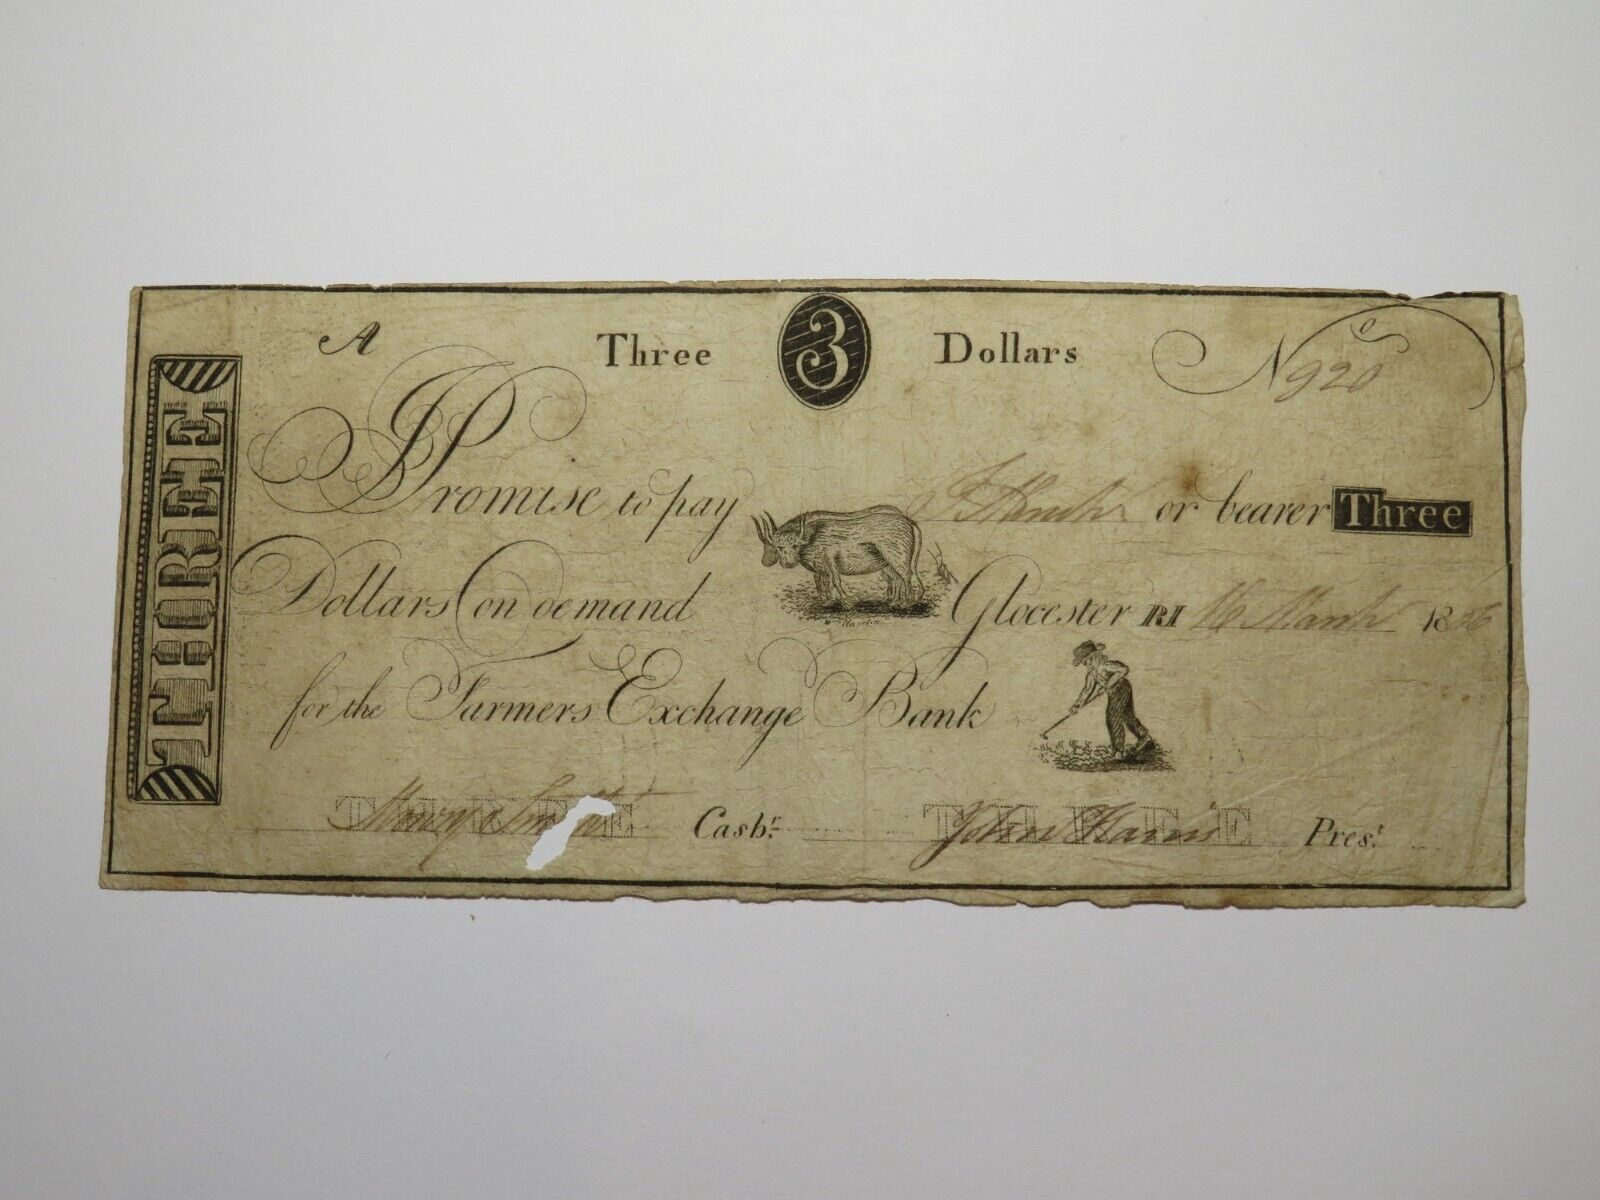 THREE
A Three 3 Dollars No 920
I Promise to pay or bearer Three
Dollars on demand Glocester RI 16 March 18
W. Hamlin
for the Farmers Exchange Bank
THREE Cashr. THREE Prest.
John Harris